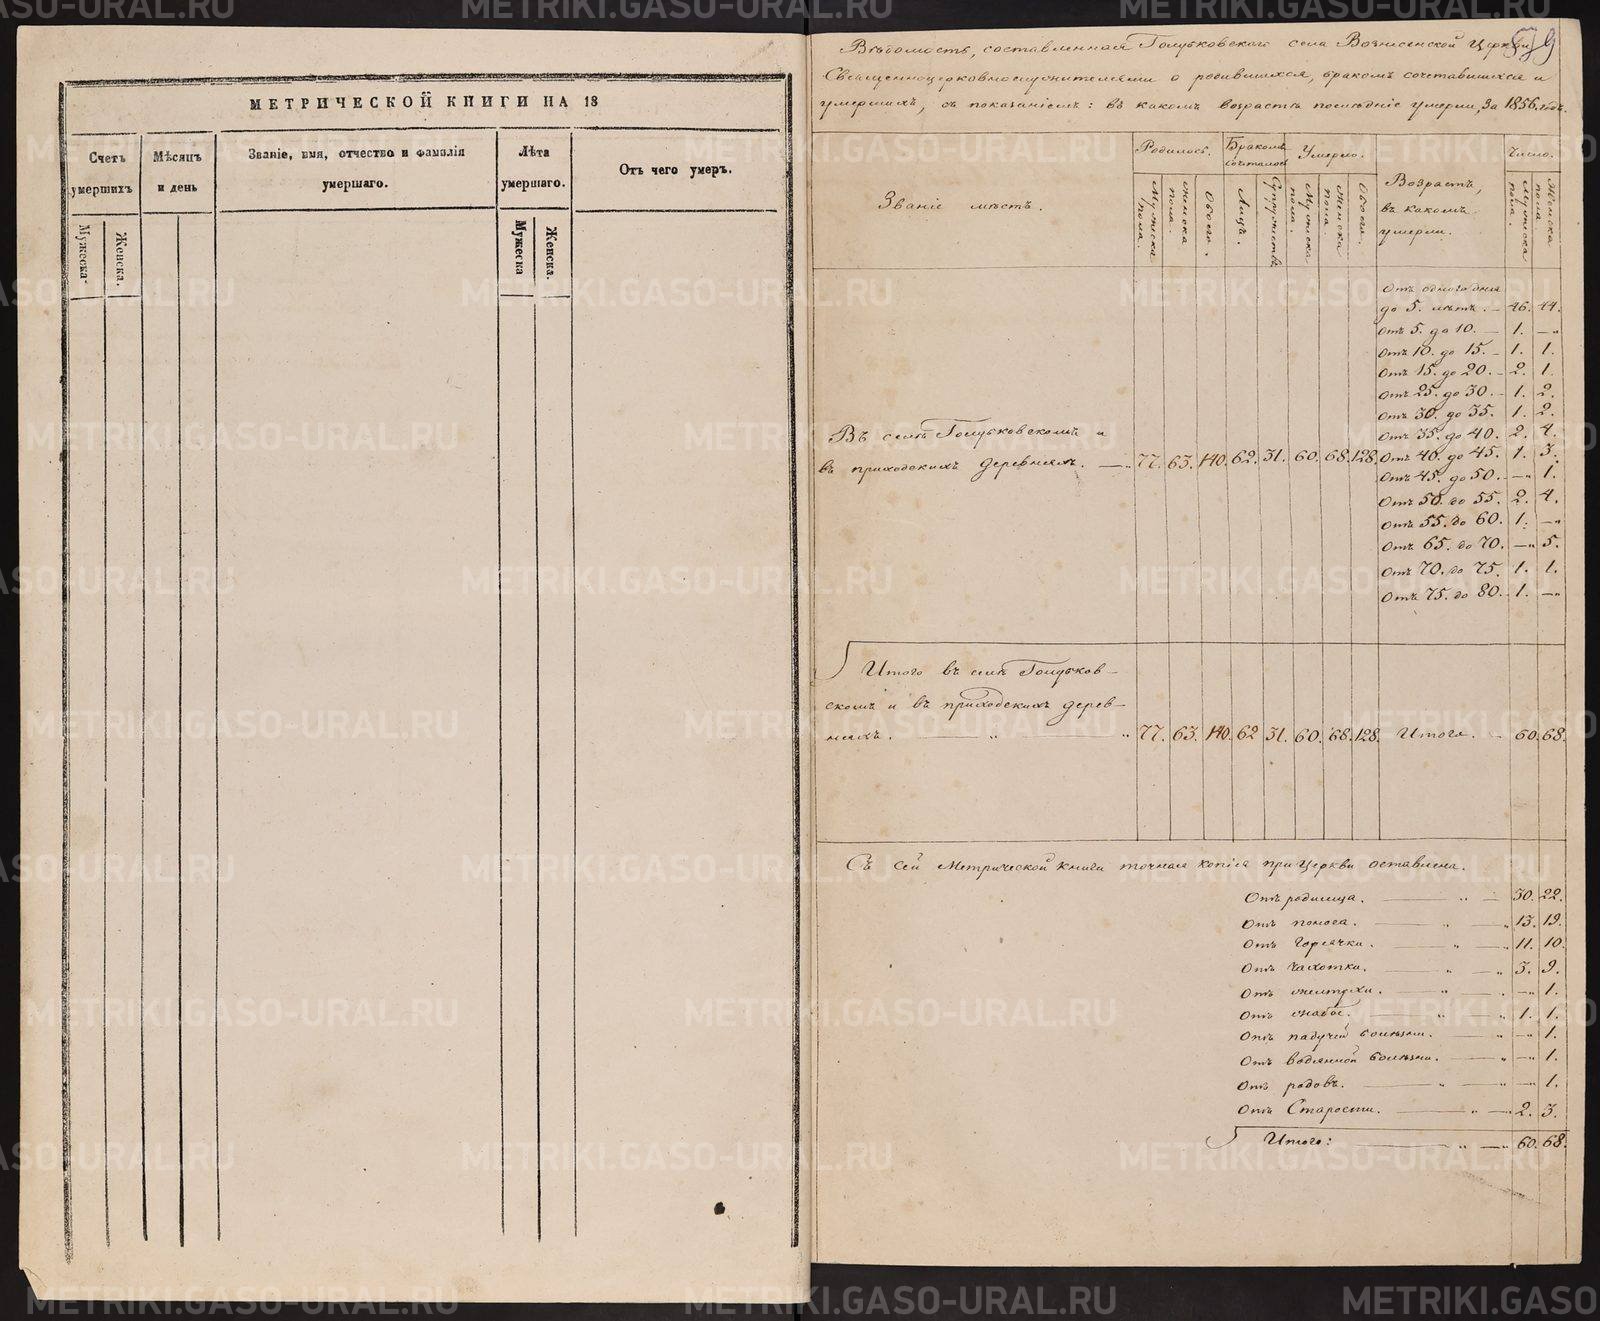 МЕТРИЧЕСКОЙ КНИГИ НА 18
Счетъ умершихъ
Мѣсяцъ и день
Званіе, имя, отчество и фамилія умершаго.
Лѣта умершаго.
Отъ чего умеръ.
Мужеска
Женска.
Мужеска
Женска.
Вѣдомость, составленная Голубковскаго села Вознесенской Церкви
Священноцерковнослужителями о родившихся, бракомъ сочетавшихся и
умершихъ, съ показаніемъ: въ какомъ возрастѣ послѣдніе умерли, за 1856. годъ.
Званіе мѣстъ.
Родилось.
Бракомъ сочеталось
Умерло.
Возрастъ, въ какомъ умерли.
Число.
Мужеска пола.
Женска пола.
Обоего.
Лицъ.
Супружествъ.
Мужеска пола.
Женска пола.
Обоего.
Мужеска пола.
Женска пола
Отъ одного дня
до 5. лѣтъ. — 46. 44.
Отъ 5. до 10. — 1. —„
Отъ 10. до 15. — 1. 1.
Отъ 15. до 20. — 2. 1.
Отъ 25. до 30. — 1. 2.
Отъ 30. до 35. 1. 2.
Отъ 35. до 40. 2. 4.
Въ селѣ Голубковскомъ и
въ приходскихъ деревняхъ. —„ 77. 63. 140. 62. 31. 60. 68. 128. Отъ 40. до 45. 1. 3.
Отъ 45. до 50. —„ 1.
Отъ 50. до 55. 2. 4.
Отъ 55. до 60. 1. —„
Отъ 65. до 70. —„ 5.
Отъ 70. до 75. 1. 1.
Отъ 75. до 80. 1. —„
Итого въ селѣ Голубков-
скомъ и въ приходскихъ дерев-
няхъ. — „ — „ 77. 63. 140. 62 31. 60. 68. 128. Итого. — 60. 68.
Съ сей Метрической книги точная копія при Церкви оставлена.
Отъ родимца. — „ — 30. 22.
Отъ поноса. — „ —„ 13. 19.
Отъ горячки. — „ —„ 11. 10.
Отъ чахотки. — „ —„ 3. 9.
Отъ желтухи. — „ —„ —„ 1.
Отъ жабы. — „ —„ 1. 1.
Отъ падучей болѣзни. — „ —„ 1.
Отъ водянной болѣзни. — „ —„ 1.
Отъ родовъ. — „ —„ —„ 1.
Отъ Старости. — „ —„ 2. 3.
Итого: — „ —„ 60. 68.
METRIKI.GASO-URAL.RU